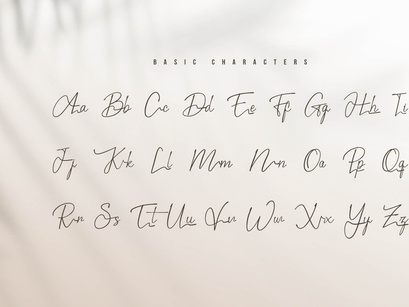 BASIC CHARACTERS
Aa Bb Cc Dd Ee Ff Gg Hh Ii
Jj Kk Ll Mm Nn Oo Pp Qq
Rr Ss Tt Uu Vv Ww Xx Yy Zz